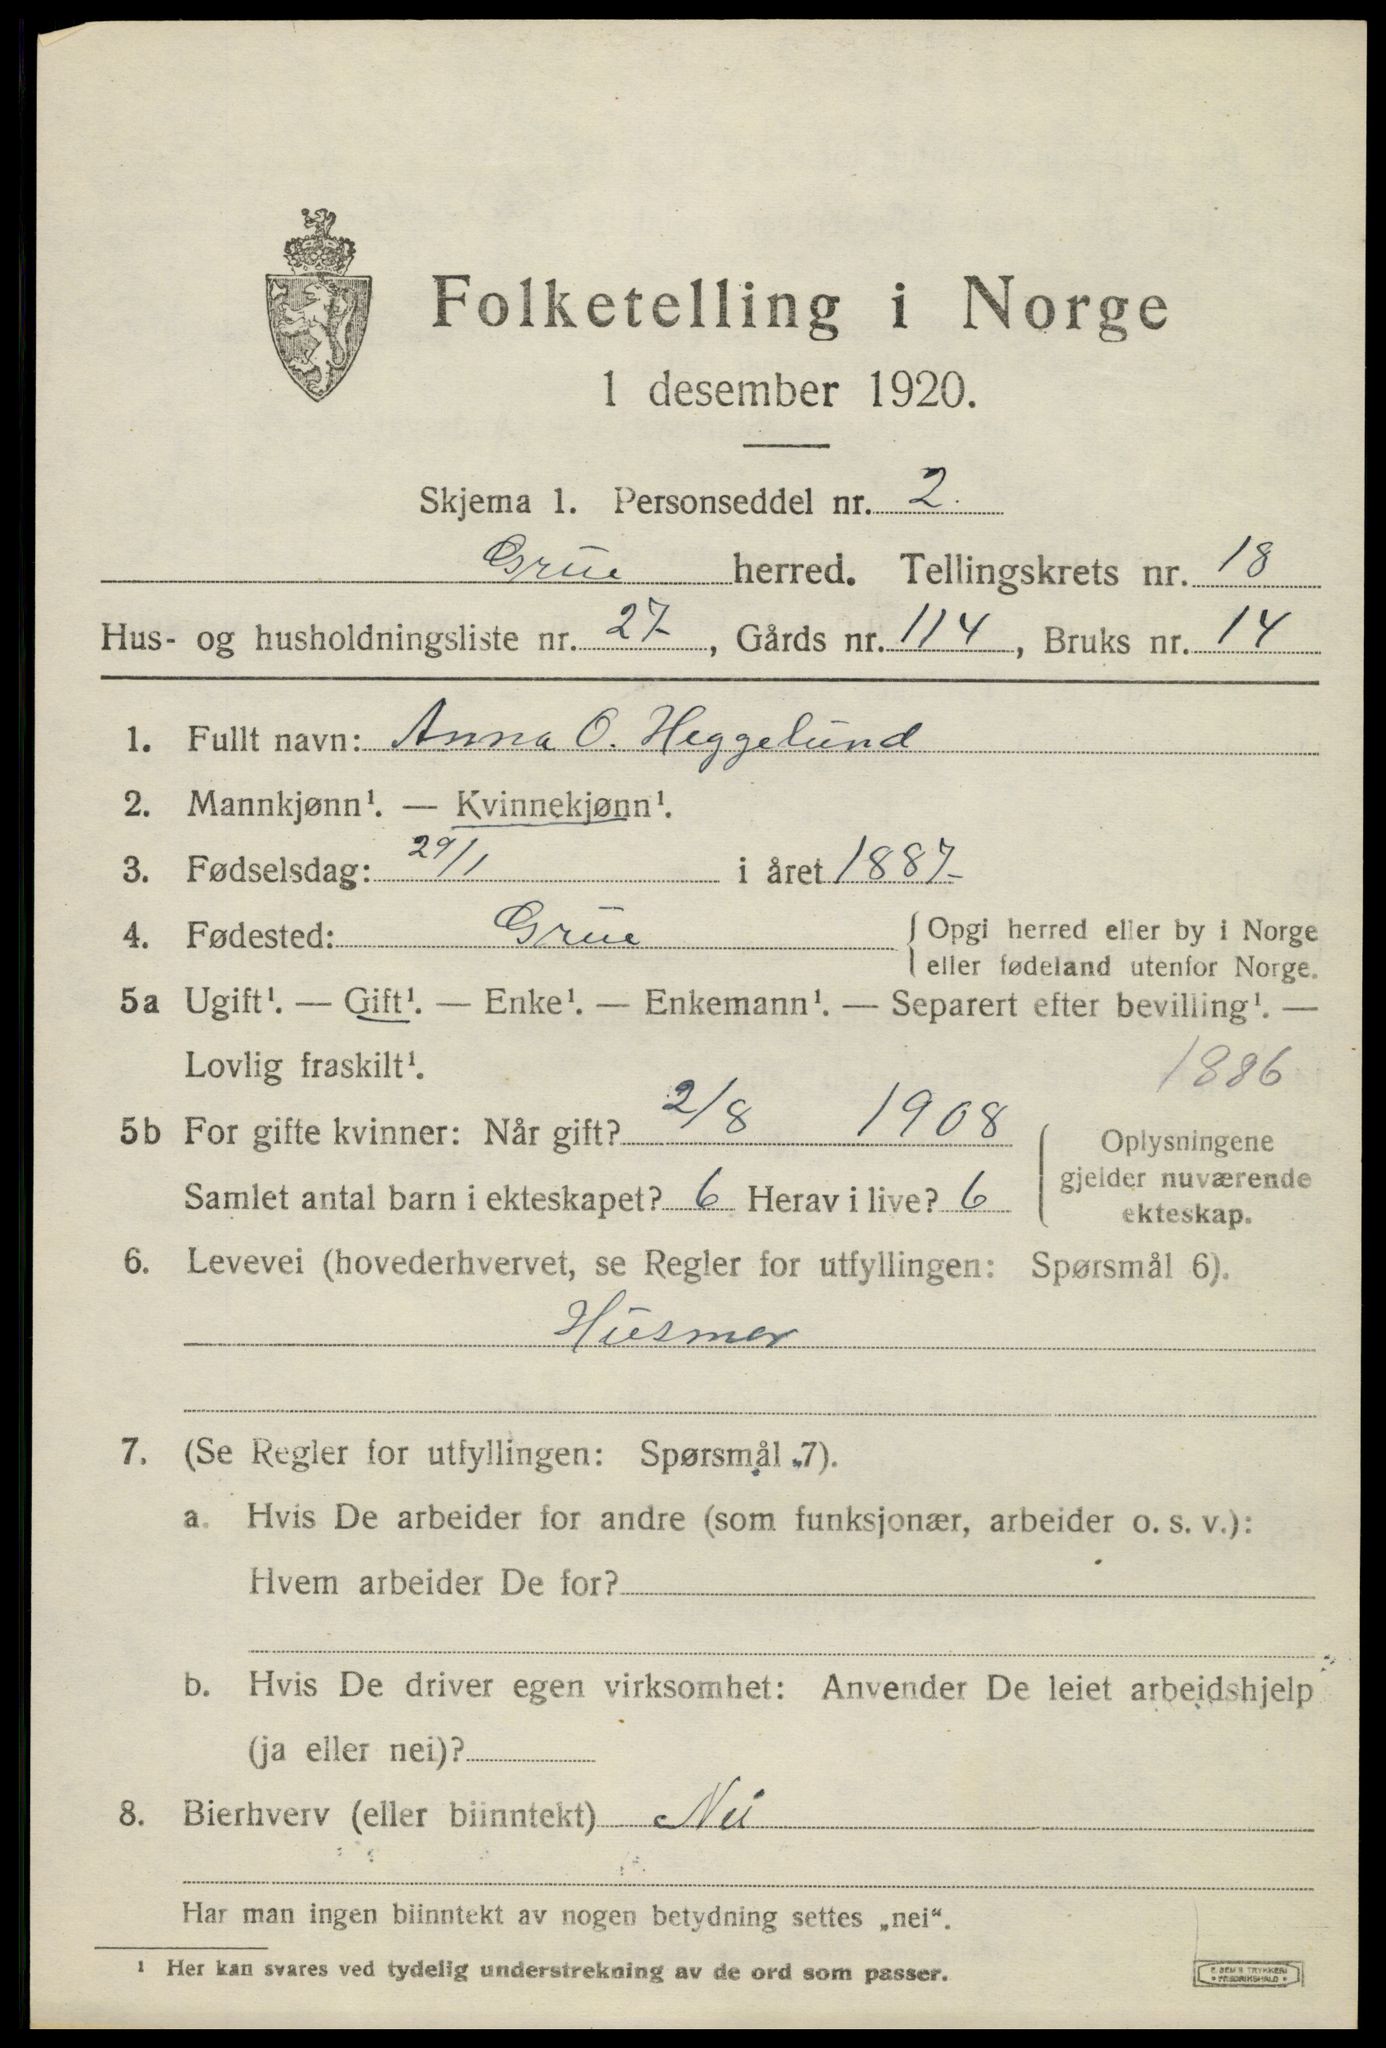 Folketelling i Norge
1 desember 1920.
Skjema 1. Personseddel nr. 2.
Grue herred. Tellingskrets nr. 18
Hus- og husholdningsliste nr. 27, Gårds nr. 114, Bruks nr. 14
1. Fullt navn: Anna O. Heggelund
2. Mannkjønn¹. — Kvinnekjønn¹.
3. Fødselsdag: 29/1 i året 1887
4. Fødested: Grue { Opgi herred eller by i Norge
eller fødeland utenfor Norge.
5a Ugift¹. — Gift¹. — Enke¹. — Enkemann¹. — Separert efter bevilling¹. —
Lovlig fraskilt¹. 1886
5b For gifte kvinner: Når gift? 2/8 1908
Samlet antal barn i ekteskapet? 6 Herav i live? 6
{ Oplysningene
gjelder nuværende
ekteskap.
6. Levevei (hovederhvervet, se Regler for utfyllingen: Spørsmål 6).
Husmor
7. (Se Regler for utfyllingen: Spørsmål 7).
a. Hvis De arbeider for andre (som funksjonær, arbeider o. s. v.):
Hvem arbeider De for?
b. Hvis De driver egen virksomhet: Anvender De leiet arbeidshjelp
(ja eller nei)?
8. Bierhverv (eller biinntekt) Nei
Har man ingen biinntekt av nogen betydning settes „nei“.
¹ Her kan svares ved tydelig understrekning av de ord som passer.
E. SEM'S TRYKKERI
FREDRIKSHALD